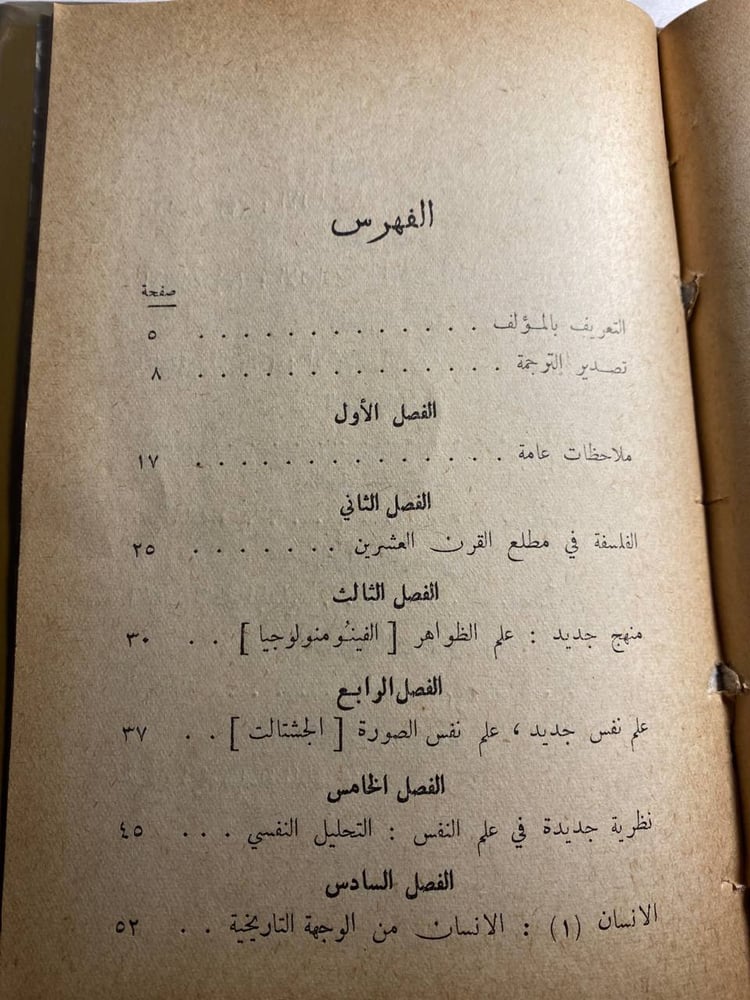 الفهرس
صفحة
التعريف بالمؤلف . . . . . . . . . . . . . ٥
تصدير الترجمة . . . . . . . . . . . . . ٨
الفصل الأول
ملاحظات عامة . . . . . . . . . . . . . ١٧
الفصل الثاني
الفلسفة في مطلع القرن العشرين . . . . . . . ٢٥
الفصل الثالث
منهج جديد : علم الظواهر [ الفينُومنولوجيا ] . . ٣٠
الفصل الرابع
علم نفس جديد ، علم نفس الصورة [ الجشتالت ] . . ٣٧
الفصل الخامس
نظرية جديدة في علم النفس : التحليل النفسي . . . ٤٥
الفصل السادس
الانسان (١) : الانسان من الوجهة التاريخية . . ٥٢